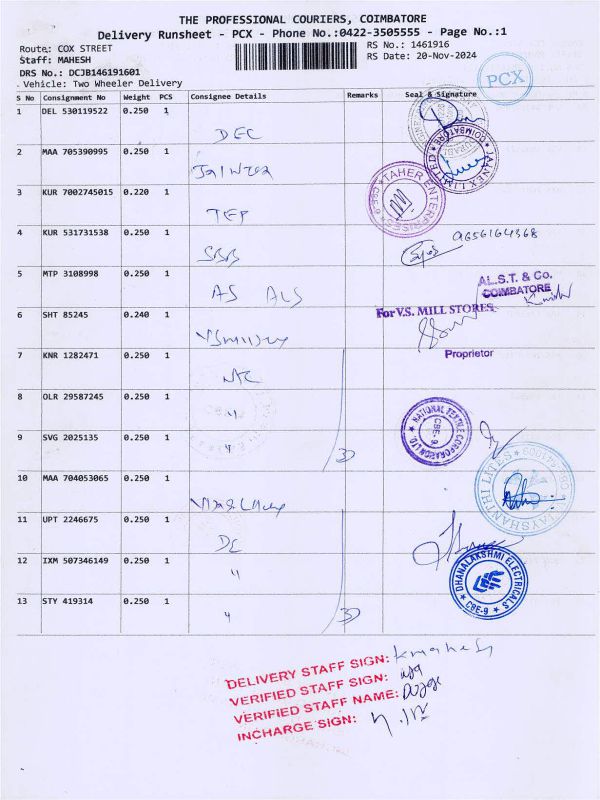 THE PROFESSIONAL COURIERS, COIMBATORE
Delivery Runsheet - PCX - Phone No.:0422-3505555 - Page No.:1
Route: COX STREET
RS No.: 1461916
Staff: MAHESH
RS Date: 20-Nov-2024
DRS No.: DCJB146191601
Vehicle: Two Wheeler Delivery
PCX
S No Consignment No Weight PCS Consignee Details Remarks Seal & Signature
1 DEL 530119522 0.250 1
DEC
2 MAA 705390995 0.250 1
JAINEX LIMITED COIMBATORE
3 KUR 7002745015 0.220 1
TEP
TAHER ENTERPRISES CBE-9
4 KUR 531731538 0.250 1
SBB
9656164368
5 MTP 3108998 0.250 1
AS ALS
AL.S.T. & Co.
COIMBATORE
6 SHT 85245 0.240 1
For V.S. MILL STORES
Proprietor
7 KNR 1282471 0.250 1
NTC
8 OLR 29587245 0.250 1
"
NATIONAL TEXTILE CORPORATION LTD. CBE-9.
9 SVG 2025135 0.250 1
"
3
10 MAA 704053065 0.250 1
VIJAYSHANTHI LITES CBE-641009
11 UPT 2246675 0.250 1
DE
12 IXM 507346149 0.250 1
"
DHANALAKSHMI ELECTRICALS CBE-9
13 STY 419314 0.250 1
"
3
DELIVERY STAFF SIGN: K mahesh
VERIFIED STAFF SIGN:
VERIFIED STAFF NAME:
INCHARGE SIGN: